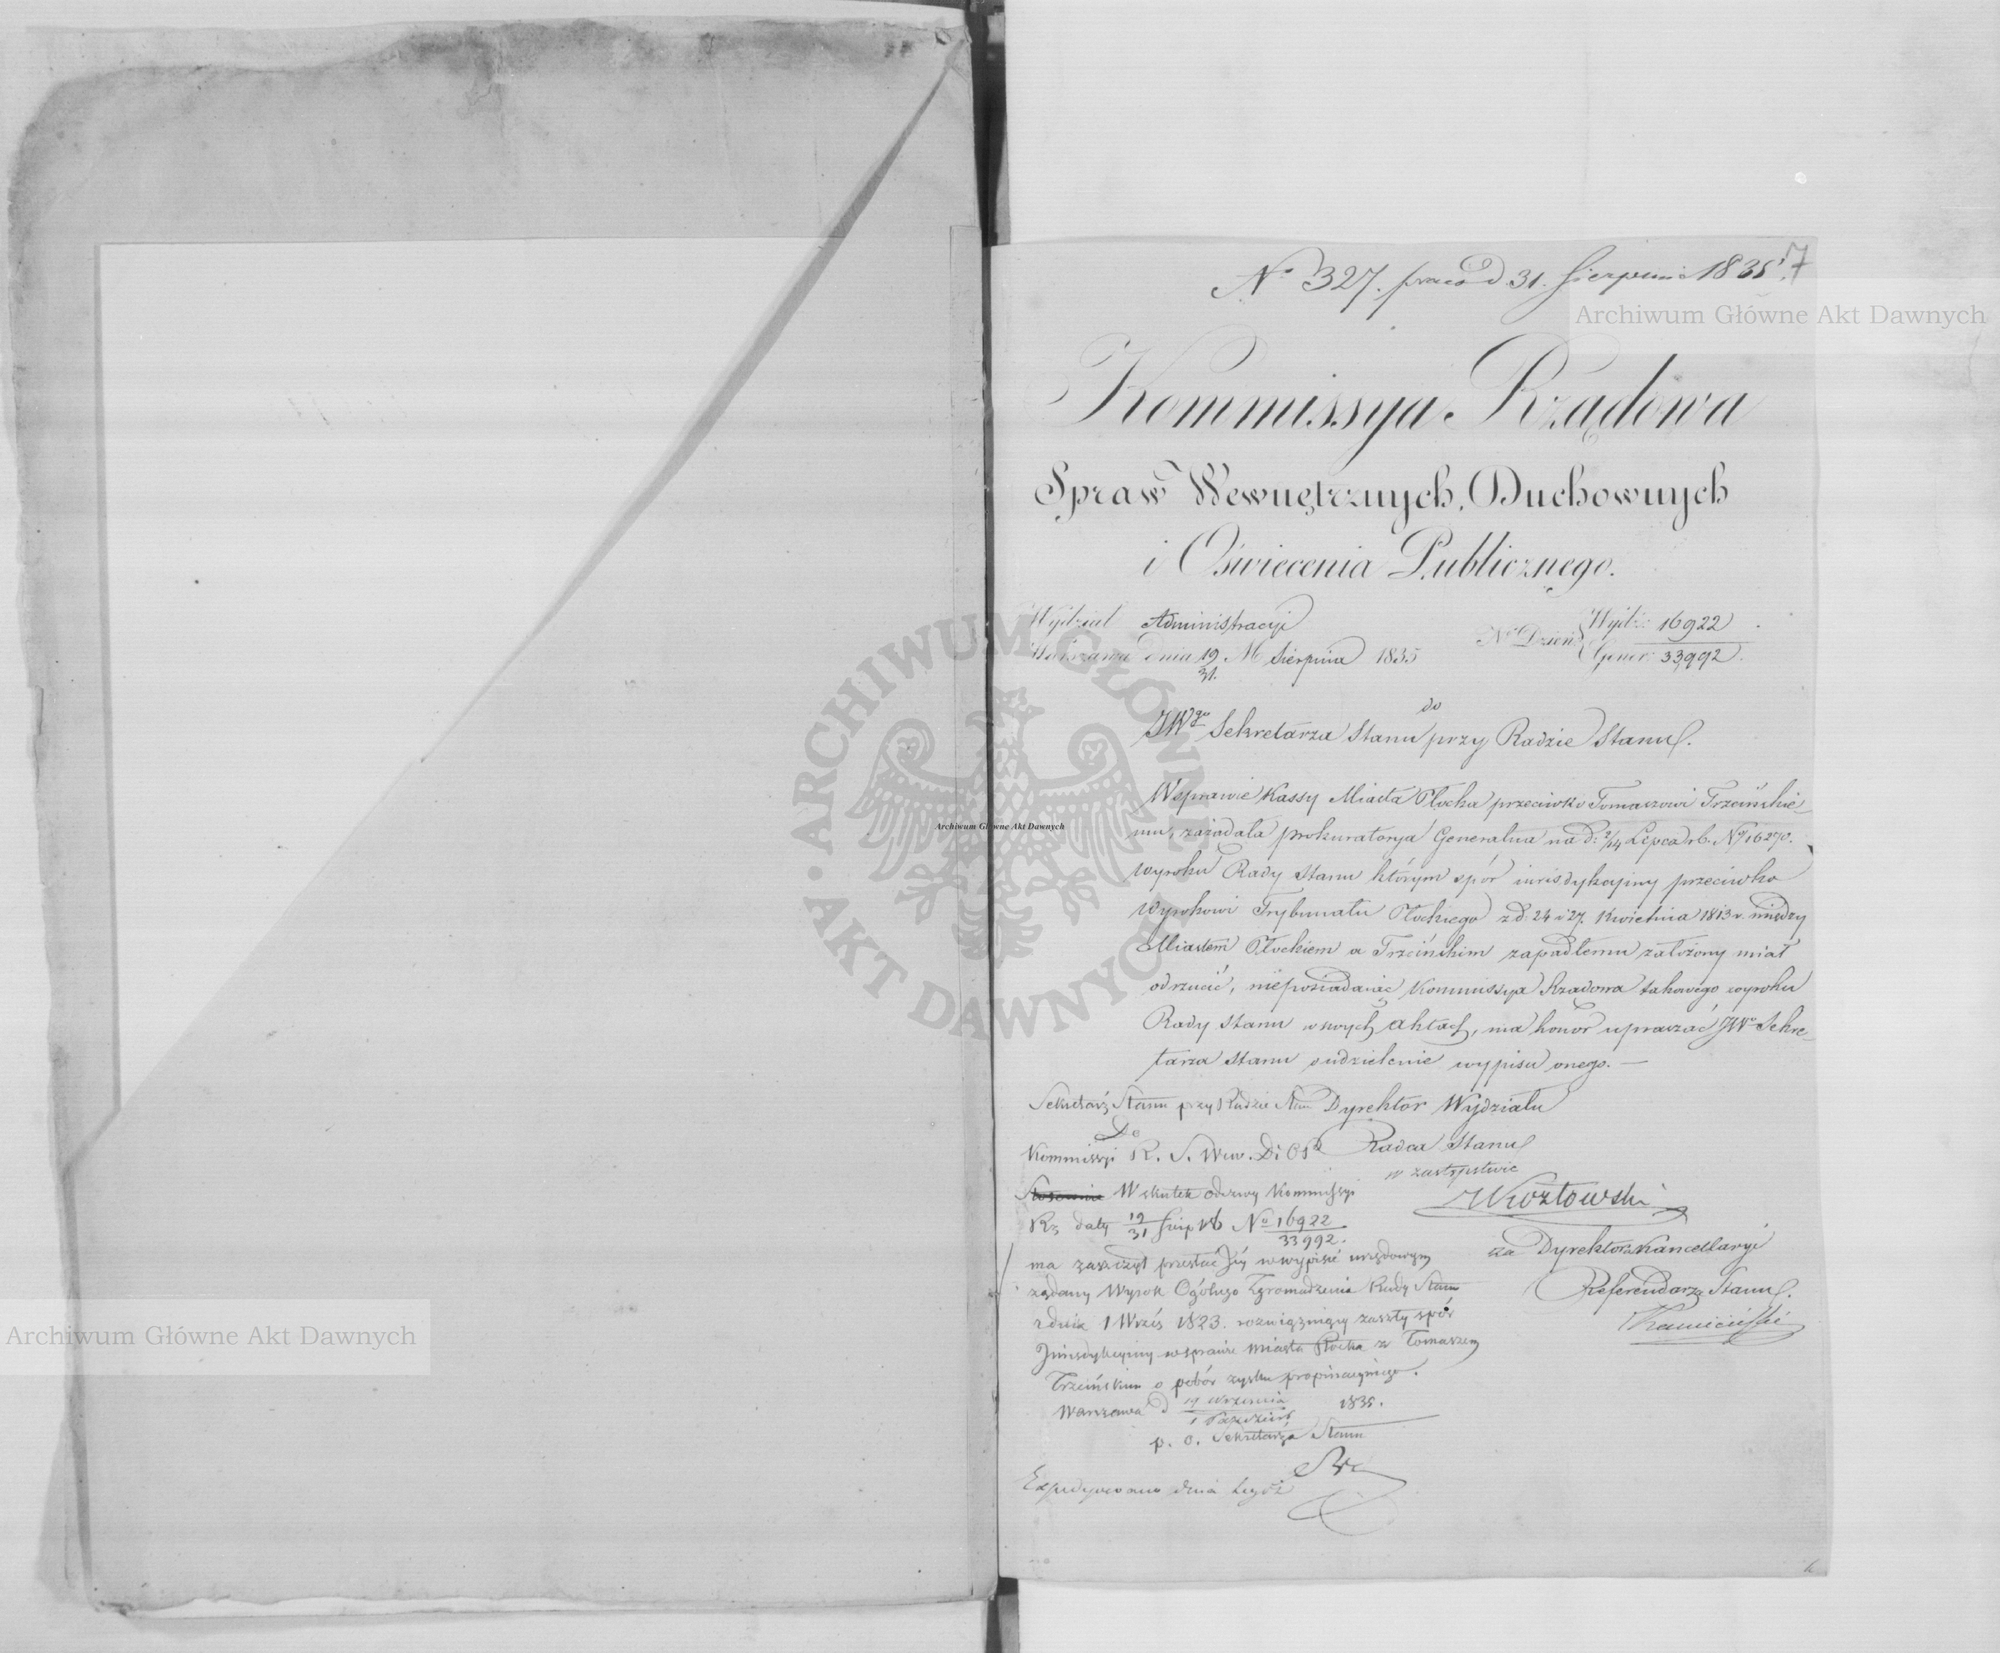 7
No 327. praes d. 31. Sierpnia 1835.
Archiwum Główne Akt Dawnych
Kommissya Rządowa
Spraw Wewnętrznych, Duchownych
i Oświecenia Publicznego.
Wydział Administracyi
Warszawa dnia 19/31. M Sierpnia 1835
No Dzien Wydz: 16922
Gener: 33,992.
do
JWgo Sekretarza Stanu przy Radzie Stanu.
W sprawie Kassy Miasta Płocka przeciwko Tomaszowi Trzcińskie-
mu, zażądała prokuratorya Generalna na d: 2/14 Lipca r.b. No 16270.
wyroku Rady Stanu którym spór jurisdykcyiny przeciwko
wyrokowi Trybunału Płockiego z d: 24 i 27. Kwietnia 1813 r. między
Miastem Płockiem a Trzcińskim zapadłemu założony miał
odrzucić, nieposiadając Kommissya Rządowa takowego wyroku
Rady Stanu w swych aktach, ma honor upraszać JWo Sekre-
tarza Stanu o udzielenie wypisu onego. —
Dyrektor Wydziału
Radca Stanu
w zastępstwie
Kozłowski
za Dyrektora Kancellaryi
Referendarz Stanu.
Sekretarz Stanu przy Radzie Stanu
Do
Kommissyi R. S. Wew. D i OP
W skutek odezwy Kommissyi
Rz daty 19/31 Sierp rb No 16922/33992.
ma zaszczyt przesłać Jey w wypisie urzędowym
żądany Wyrok Ogólnego Zgromadzenia Rady Stanu
z dnia 1 Wrześ 1823. rozwiązuiący zaszły spór
Jurisdykcyiny w sprawie miasta Płocka z Tomaszem
Trzcińskim o pobór zysku propinacyinego.
Warszawa d 19 Września/1 Paździer 1835.
p. o. Sekretarza Stanu
Expedyowano dnia tegoż
Archiwum Główne Akt Dawnych
ARCHIWUM GŁÓWNE AKT DAWNYCH
Archiwum Główne Akt Dawnych